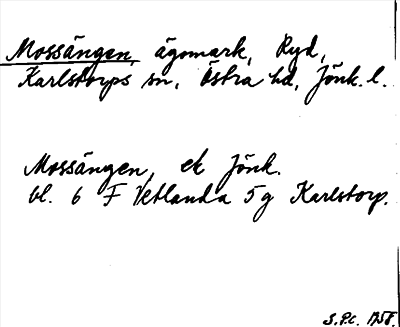 Mossängen, ägomark, Ryd,
Karlstorps sn, Östra hd, Jönk. l.
Mossängen, ek Jönk.
bl. 6 F Vetlanda 5g Karlstorp.
S.P.c. 1758.